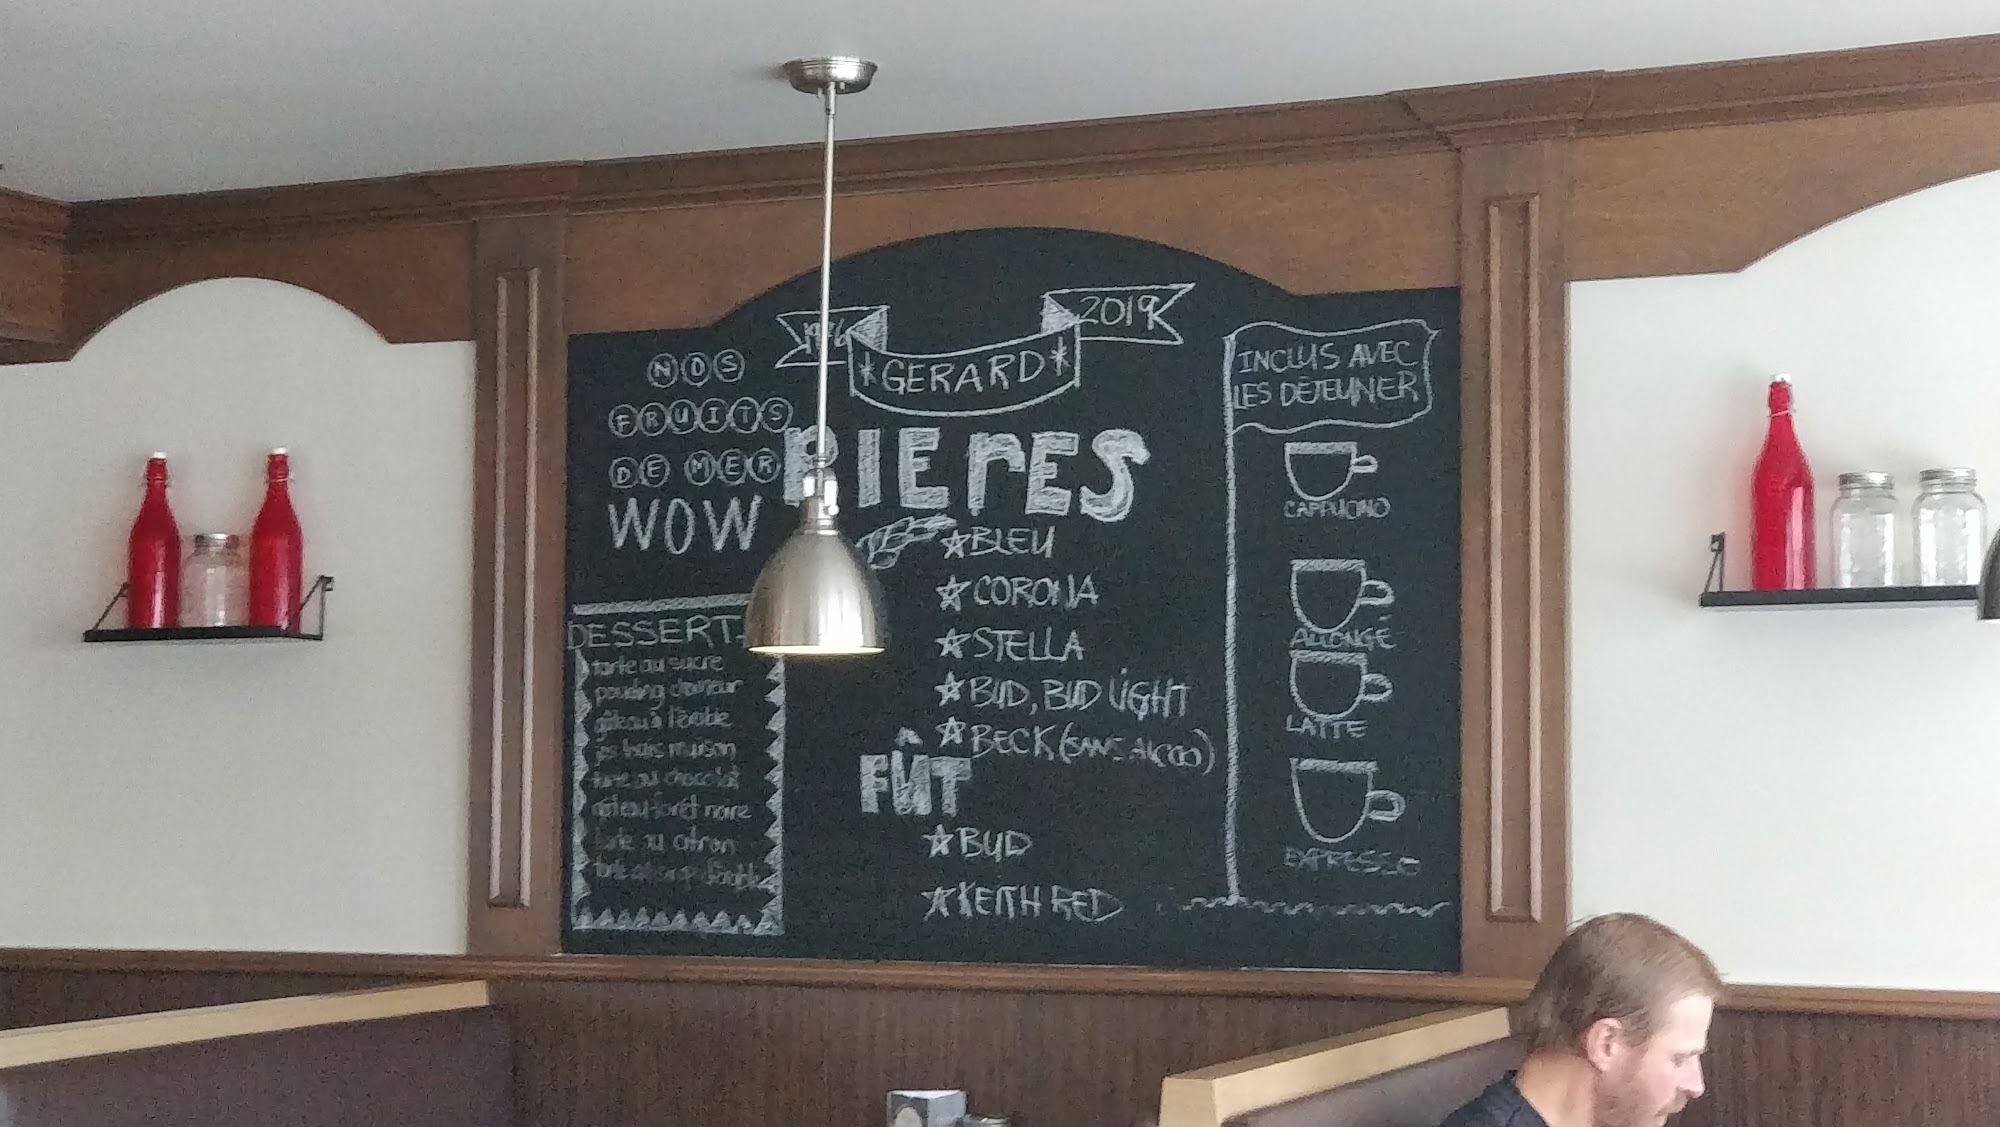 2019
*GERARD*
NOS
FRUITS
DE MER
WOW
DESSERT
tarte au sucre
pouding chomeur
gâteau à l'érable
maison
tarte au chocolat
gâteau forêt noire
tarte au citron
BIERES
BLEU
CORONA
STELLA
BUD, BUD LIGHT
BECK (SANS ALCOO)
FÛT
BUD
KEITH RED
INCLUS AVEC
LES DÉJEUNER
CAPPUCINO
ALLONGÉ
LATTE
EXPRESSO